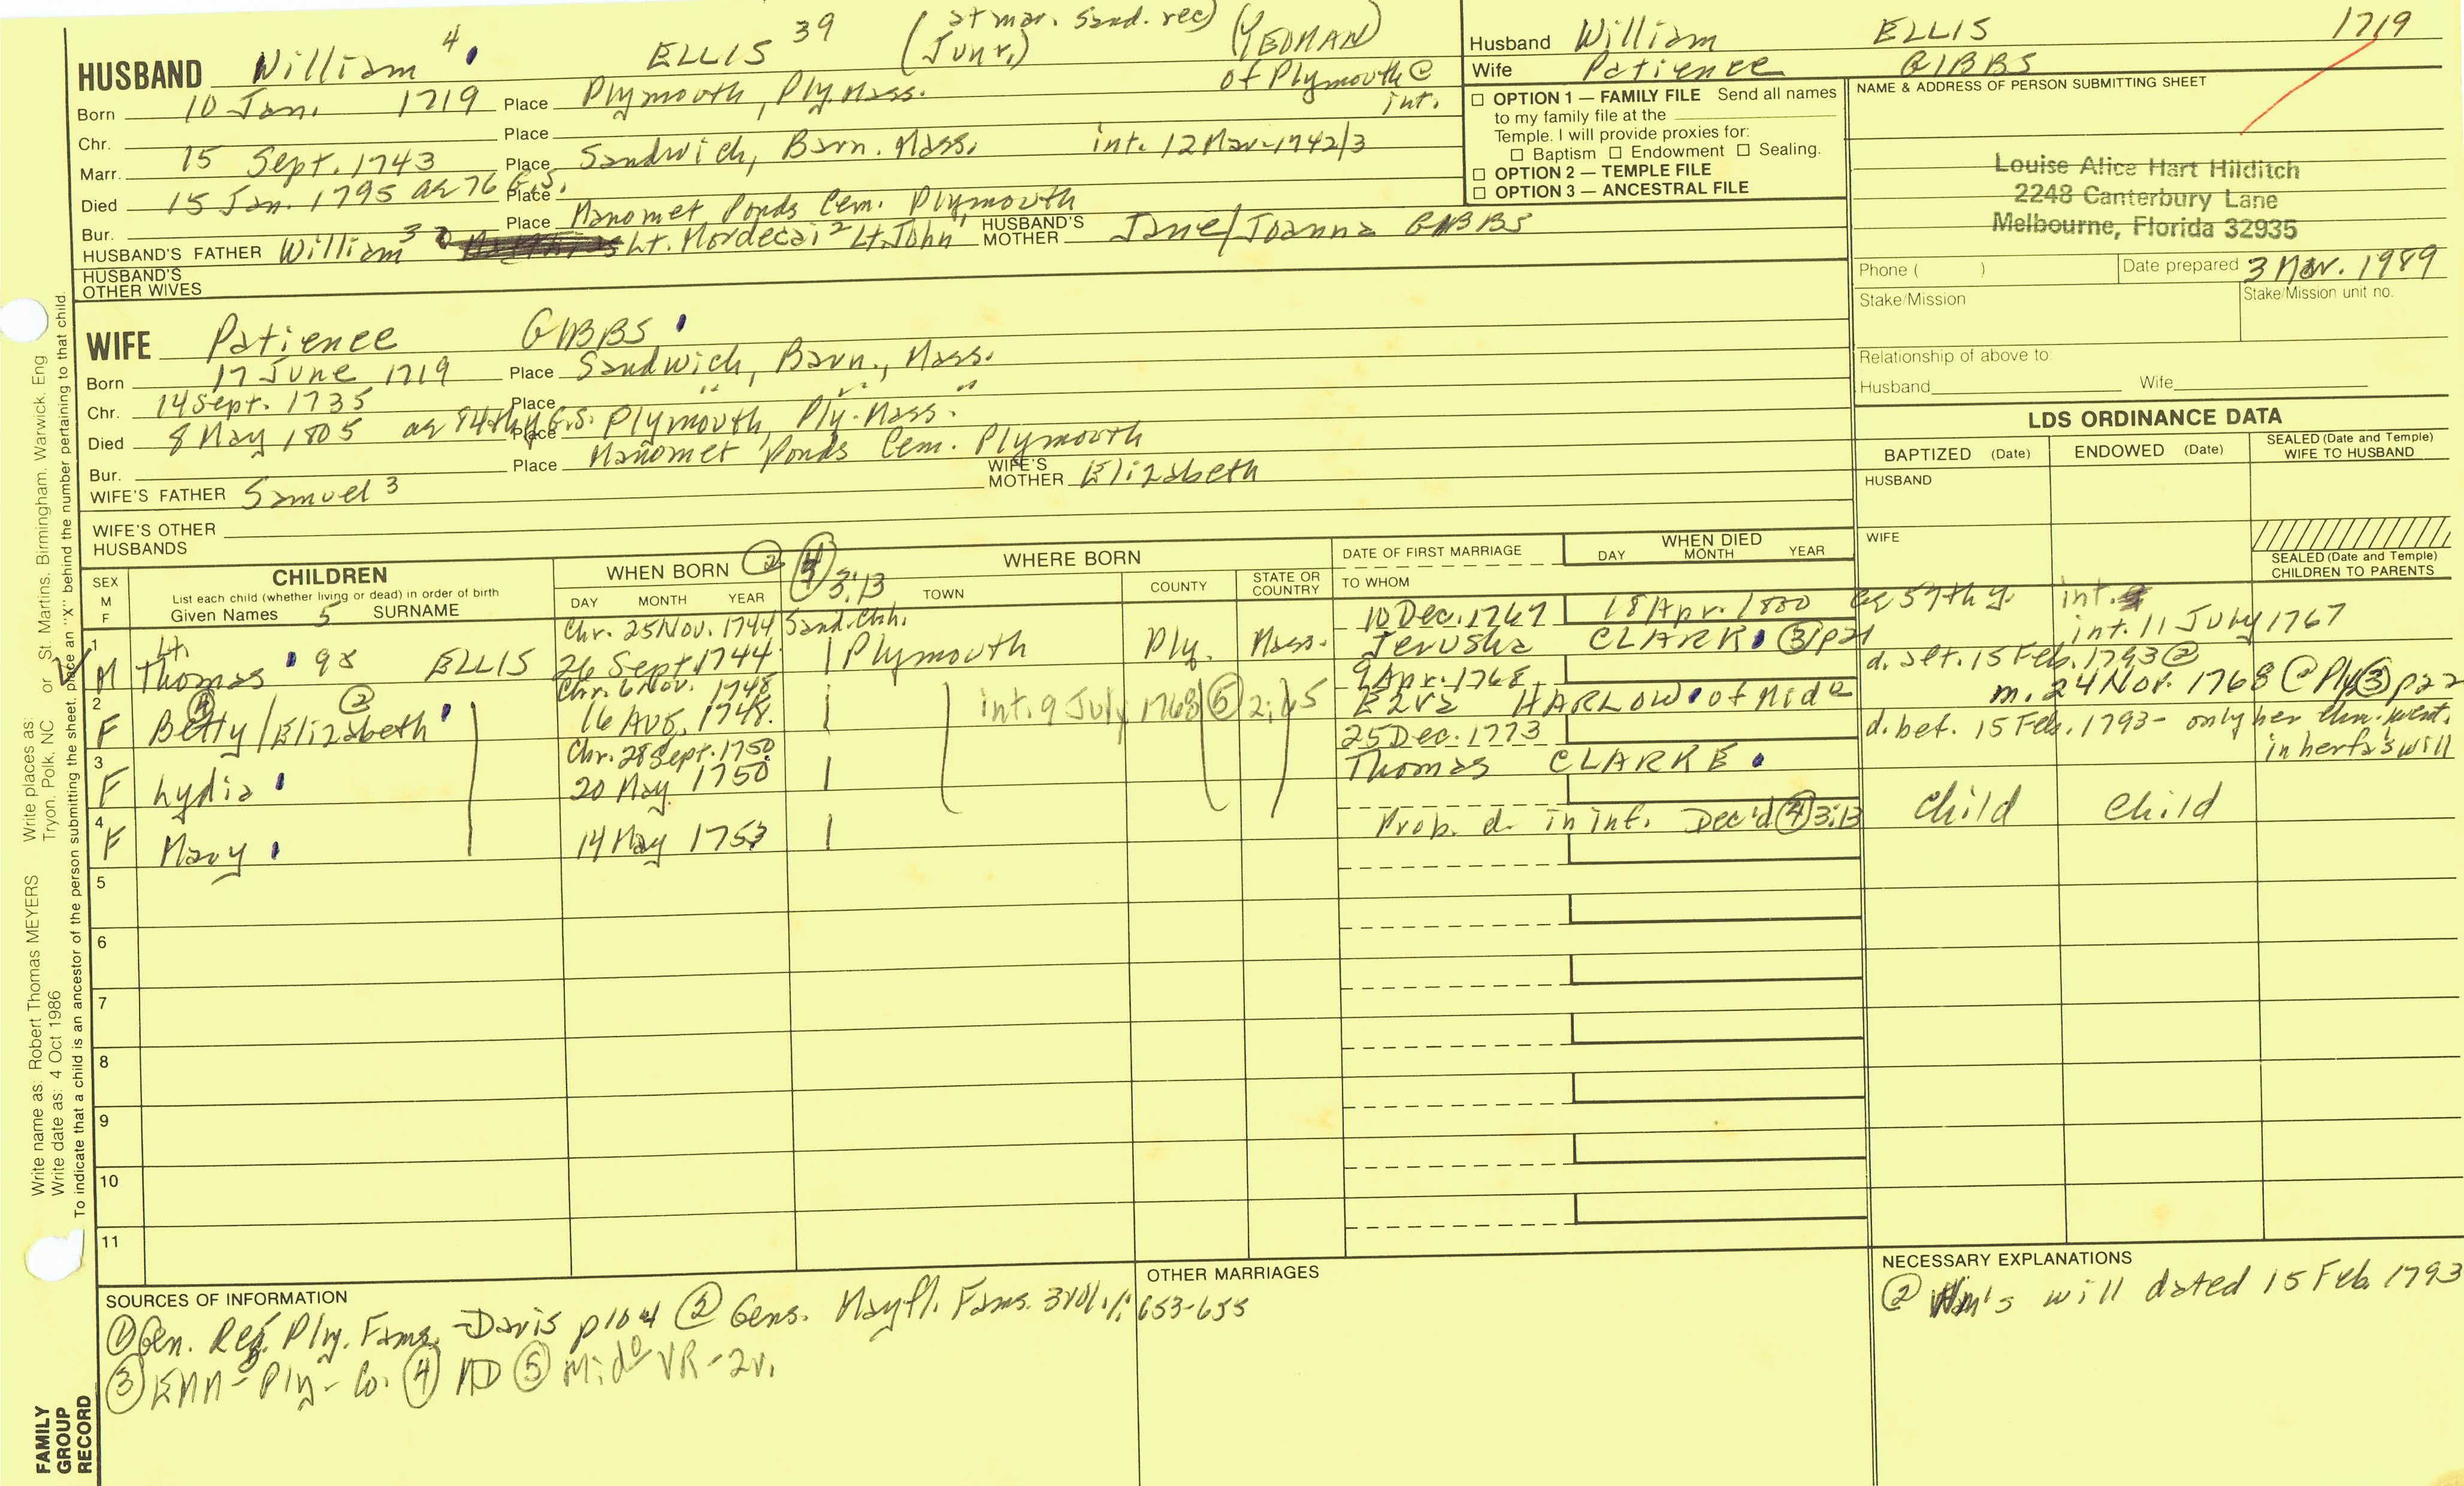 HUSBAND William 4 ELLIS 39 (Junr.) (at mar. Sand. rec) (YEOMAN)
Born 10 Jan. 1719 Place Plymouth, Ply. Mass. of Plymouth @ int.
Chr. Place
Marr. 15 Sept. 1743 Place Sandwich, Barn. Mass. int. 12 Mar. 1742/3
Died 15 Jan. 1795 ae 76 G.S. Place
Bur. Place Manomet Ponds Cem. Plymouth
HUSBAND'S FATHER William 3 Lt. Mordecai 2 Lt. John 1 HUSBAND'S MOTHER Jane/Joanna GIBBS
HUSBAND'S OTHER WIVES
WIFE Patience GIBBS
Born 17 June 1719 Place Sandwich, Barn., Mass.
Chr. 14 Sept. 1735 Place " " "
Died 8 May 1805 ae 84th y G.S. Place Plymouth, Ply. Mass.
Bur. Place Manomet Ponds Cem. Plymouth
WIFE'S FATHER Samuel 3 WIFE'S MOTHER Elizabeth
WIFE'S OTHER HUSBANDS
Husband William ELLIS 1719
Wife Patience GIBBS
☐ OPTION 1 — FAMILY FILE Send all names
to my family file at the
Temple. I will provide proxies for:
☐ Baptism ☐ Endowment ☐ Sealing.
☐ OPTION 2 — TEMPLE FILE
☐ OPTION 3 — ANCESTRAL FILE
NAME & ADDRESS OF PERSON SUBMITTING SHEET
Louise Alice Hart Hilditch
2248 Canterbury Lane
Melbourne, Florida 32935
Phone ( ) Date prepared 3 Mar. 1989
Stake/Mission Stake/Mission unit no.
Relationship of above to:
Husband Wife
LDS ORDINANCE DATA
BAPTIZED (Date) ENDOWED (Date) SEALED (Date and Temple) WIFE TO HUSBAND
HUSBAND
WIFE
SEALED (Date and Temple) CHILDREN TO PARENTS
SEX M F
CHILDREN
List each child (whether living or dead) in order of birth
Given Names 5 SURNAME
WHEN BORN ②
DAY MONTH YEAR
④ 3:13
WHERE BORN
TOWN COUNTY STATE OR COUNTRY
DATE OF FIRST MARRIAGE
TO WHOM
WHEN DIED
DAY MONTH YEAR
Chr. 25 Nov. 1744 Sand. Chh. 10 Dec. 1767 18 Apr. 1800 ae 57th y. int.
int. 11 July 1767
1 M Lt. Thomas 98 ELLIS 26 Sept 1744 Plymouth Ply. Mass. Jerusha CLARK ③ p21
Chr. 6 Nov. 1748 9 Apr. 1768 d. aft. 15 Feb. 1793 @
2 F Betty ④ /Elizabeth ② 16 Aug. 1748 int. 9 July 1768 ⑤ 2:65 Ezra HARLOW of Mido m. 24 Nov. 1768 @ Ply ③ p22
Chr. 28 Sept. 1750 25 Dec. 1773 d. bef. 15 Feb. 1793 - only her chn. ment.
in her fa's will
3 F Lydia 20 May 1750 Thomas CLARKE
4 F Mary 14 May 1753 Prob. d. in inf. Dec'd ④ 3:13 Child Child
5
6
7
8
9
10
11
SOURCES OF INFORMATION
① Gen. Reg. Ply. Fams. - Davis p104 ② Gens. Mayfl. Fams. 3 vol. 1: 653-655
③ EMM - Ply - Co. ④ MD ⑤ Mido VR - 2v.
OTHER MARRIAGES
NECESSARY EXPLANATIONS
@ Wm's will dated 15 Feb. 1793
Write name as: Robert Thomas MEYERS Write places as: Tryon, Polk, NC or St. Martins, Birmingham, Warwick, Eng
Write date as: 4 Oct 1986
To indicate that a child is an ancestor of the person submitting the sheet, place an "X" behind the number pertaining to that child.
FAMILY
GROUP
RECORD